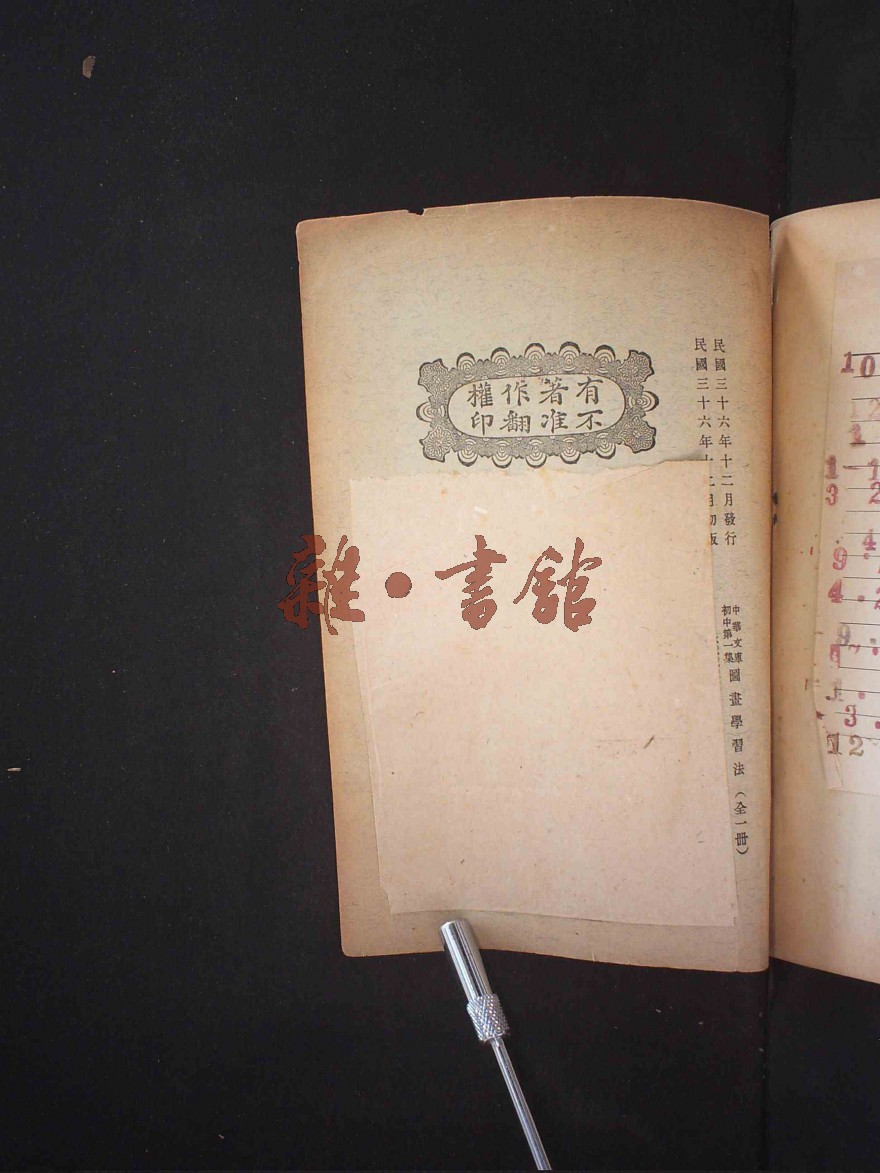 民國三十六年十二月發行
民國三十六年十二月初版
中華文庫
初中第一集
圖畫學習法（全一冊）
有著作權
不准翻印
雜・書館
10
12
1
1 1
3 2
4
9.
4.2
9.
1.
3.
12